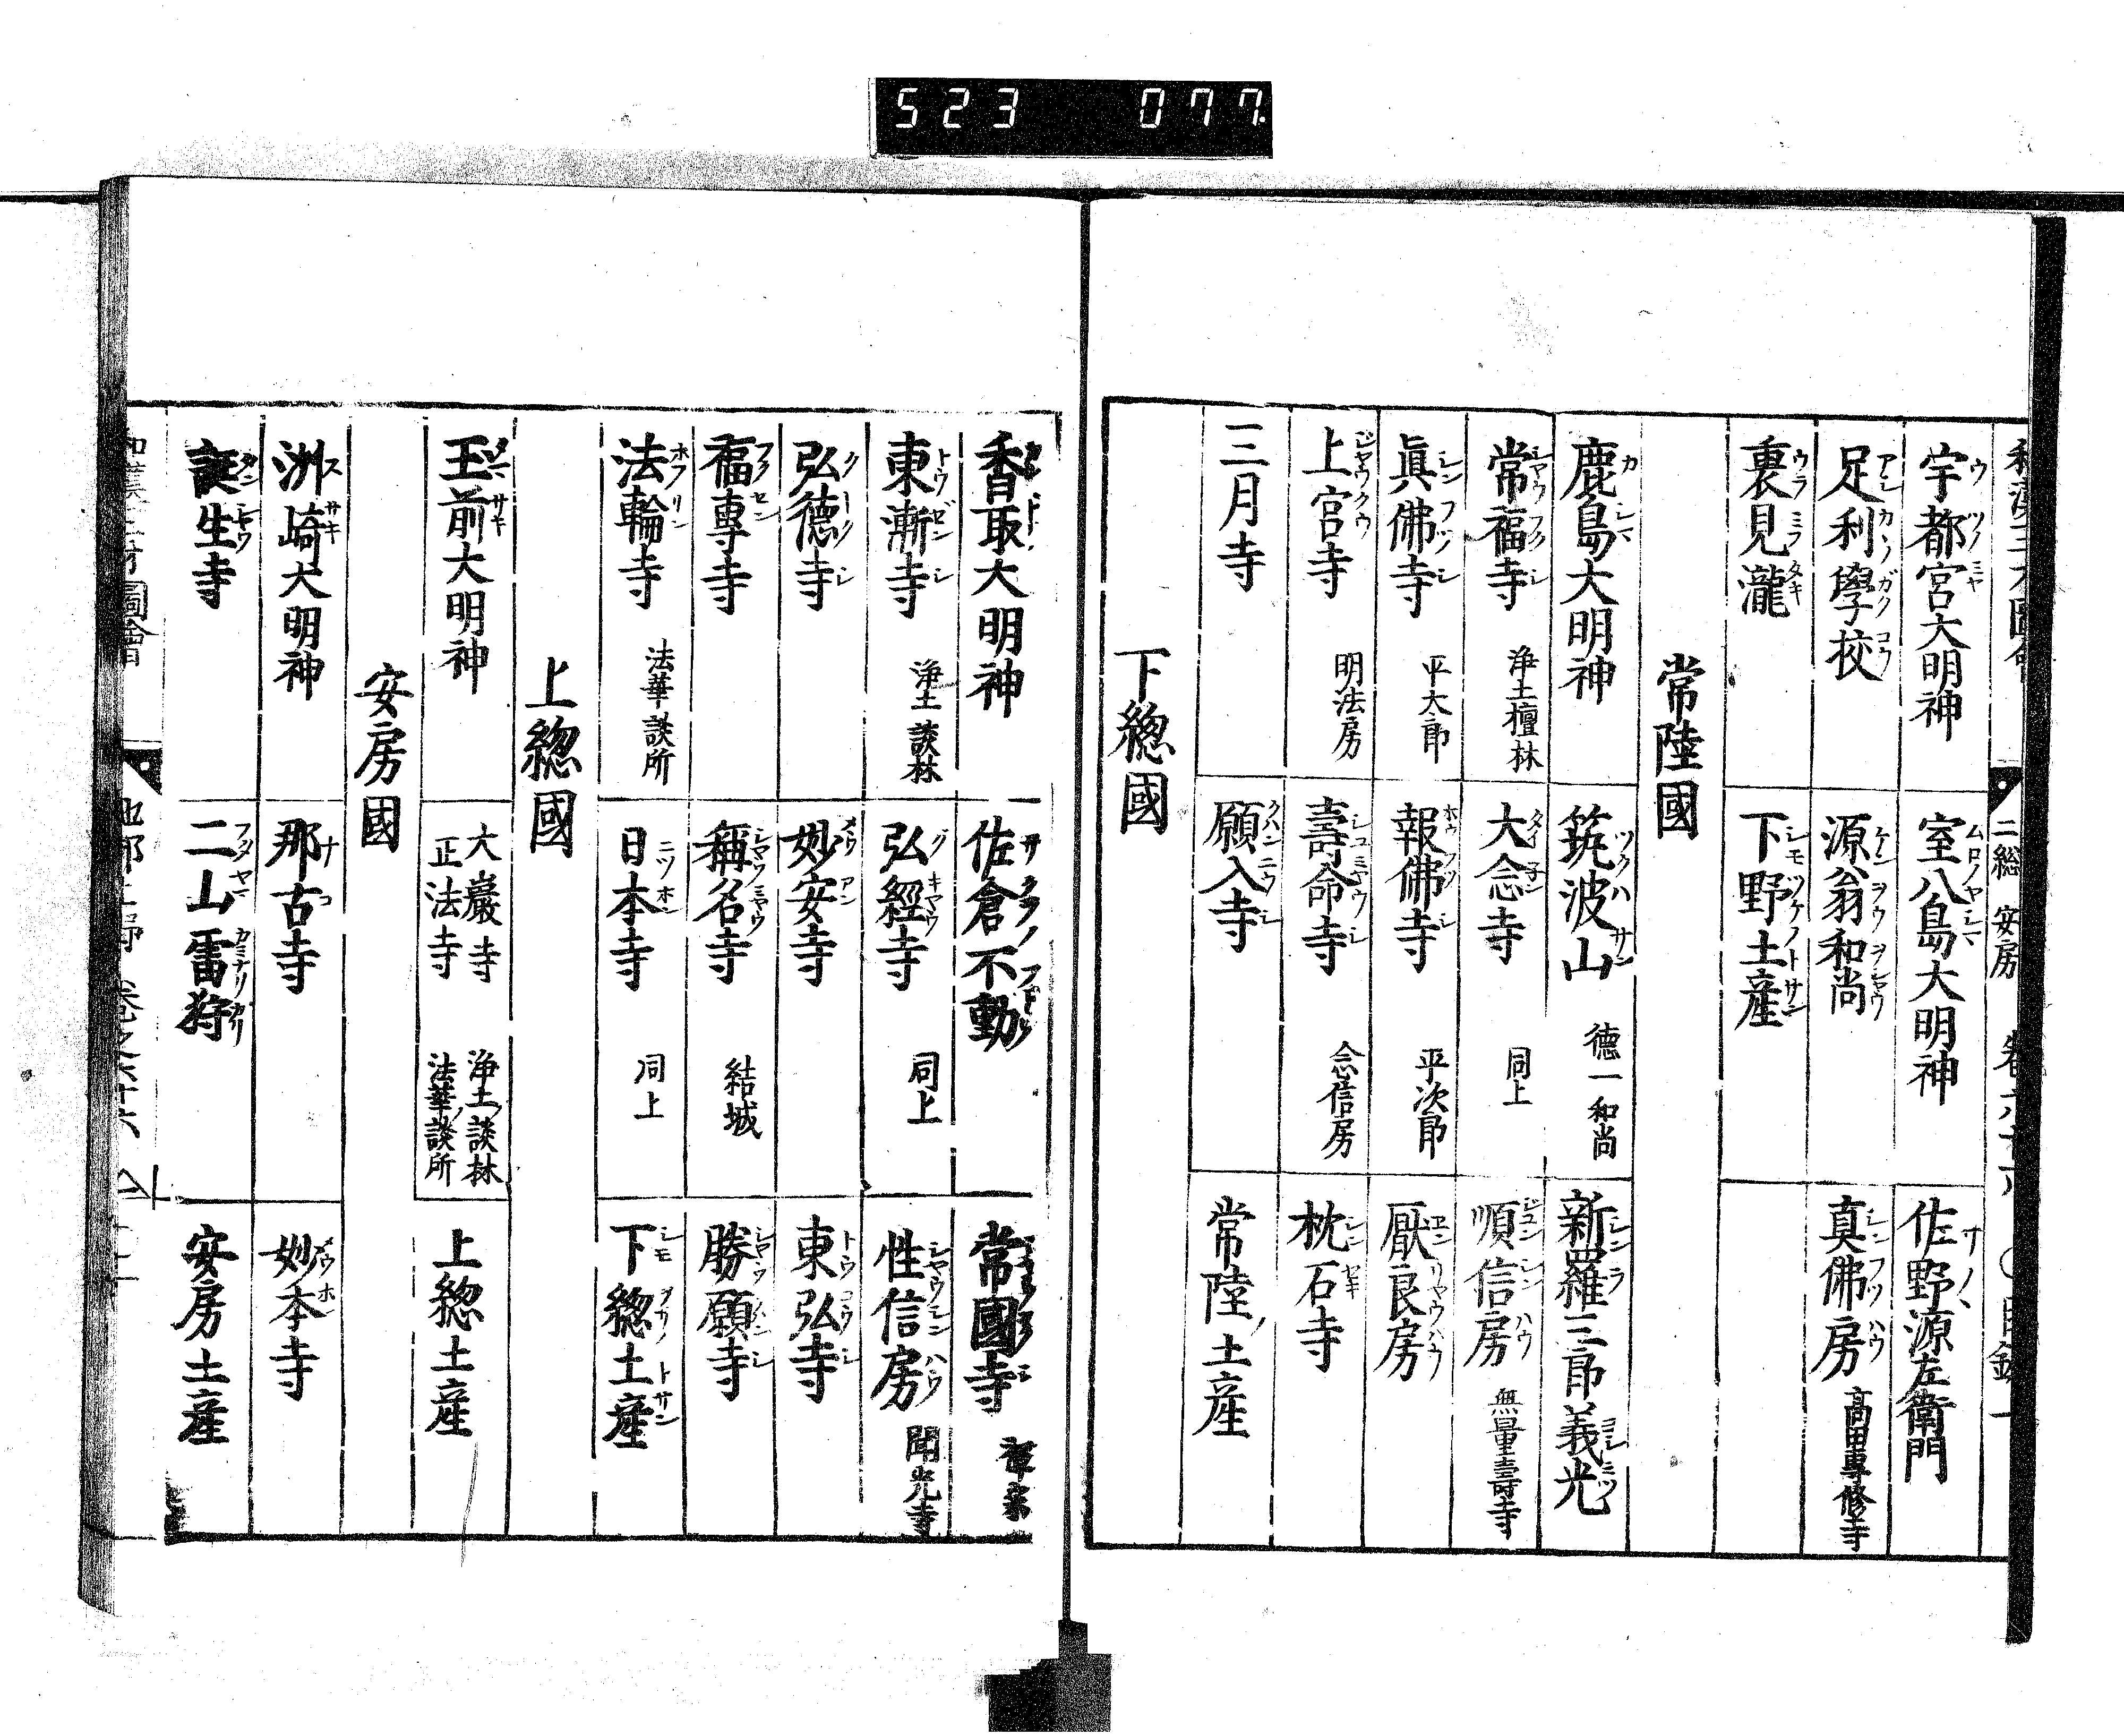 523 077.
二総 安房
宇都宮大明神 室八島大明神 佐野源左衛門
足利學校 源翁和尚 真佛房 高田專修寺
裏見瀧 下野土産
常陸國
鹿島大明神 筑波山 德一和尚 新羅三郎義光
常福寺 浄土檀林 大念寺 同上 順信房 無量壽寺
眞佛寺 平太郎 報佛寺 平次郎 厭良房
上宮寺 明法房 壽命寺 念信房 枕石寺
三月寺 願入寺 常陸ノ土産
下總國
香取大明神 佐倉不動 常國寺 禅宗
東漸寺 浄土談林 弘經寺 同上 性信房 聞光寺
弘德寺 妙安寺 東弘寺
福專寺 稱名寺 結城 勝願寺
法輪寺 法華談所 日本寺 同上 下總土産
上總國
玉前大明神 大巖寺 浄土談林 正法寺 法華談所 上總土産
安房國
洲崎大明神 那古寺 妙本寺
誕生寺 二山雷狩 安房土産